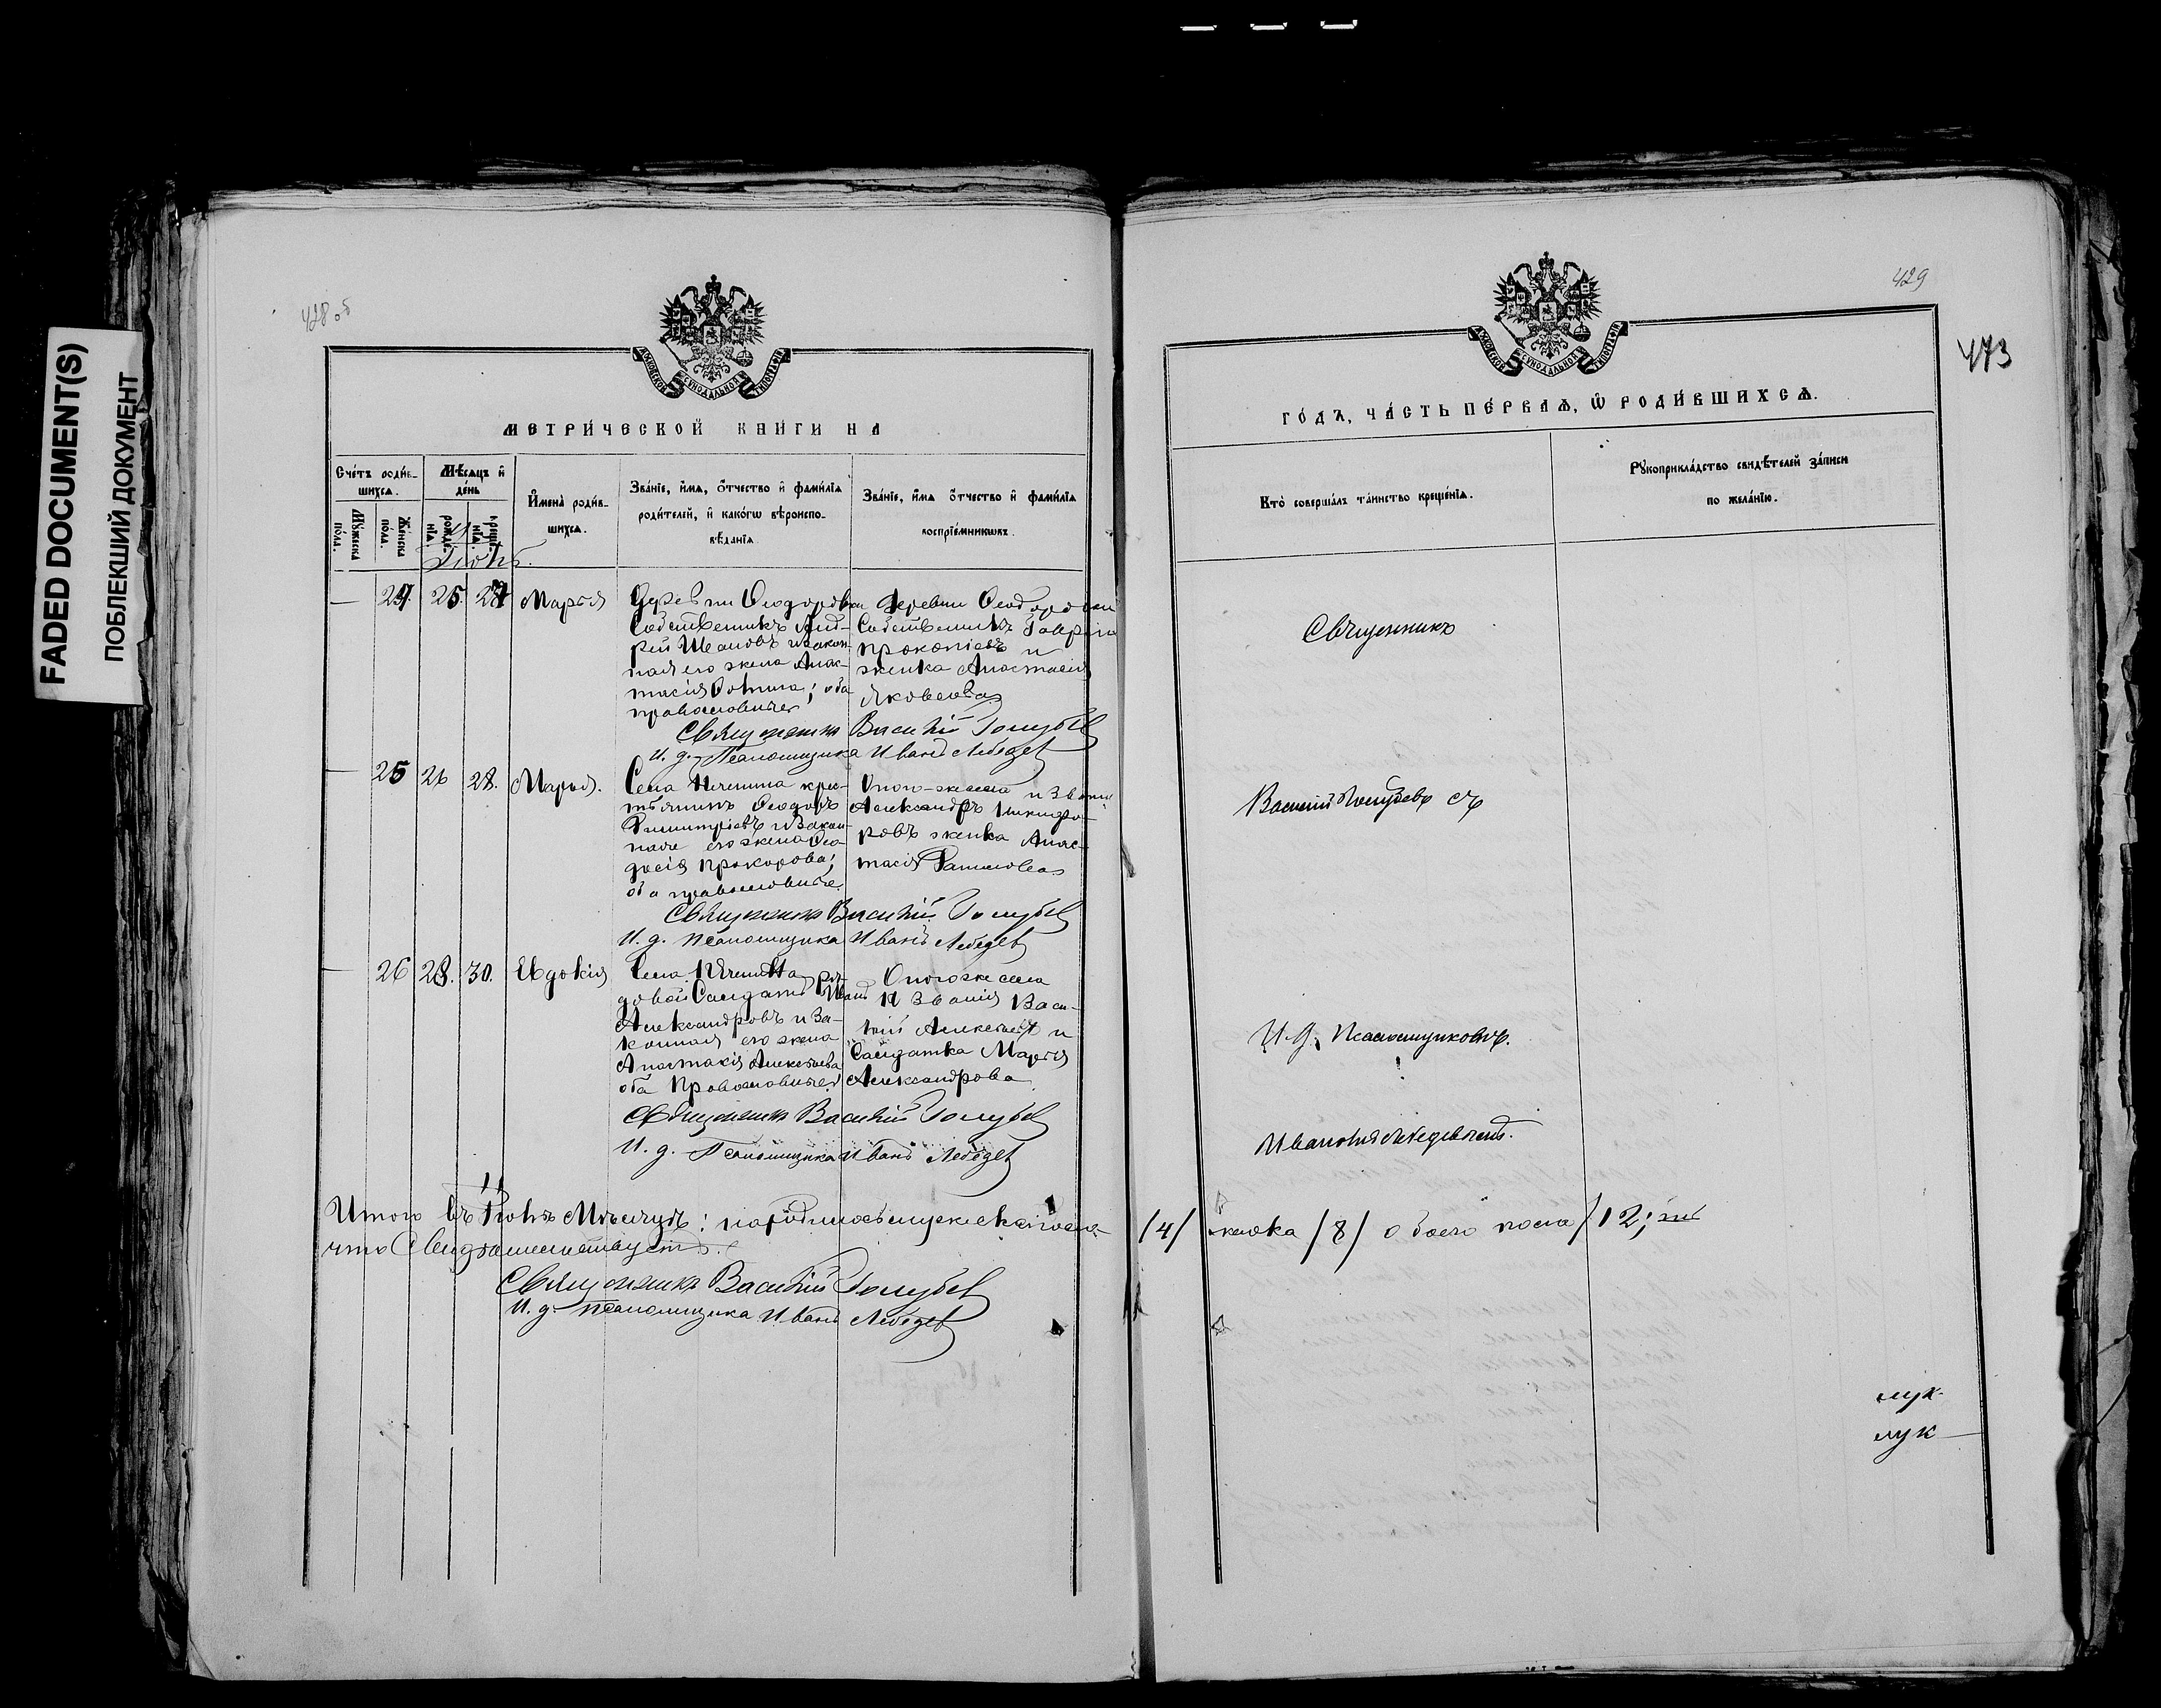 FADED DOCUMENT(S)
ПОБЛЕКШИЙ ДОКУМЕНТ
428 об
МЕТРИ́ЧЕСКОЙ КНИ́ГИ НА
Сче́тъ роди́в-
шихсѧ.
Мꙋ́жеска по́ла.
Же́нска по́ла.
Мѣ́сѧцъ и҆ де́нь
рожде́нїѧ.
креще́нїѧ.
И҆мена̀ роди́в-
шихсѧ.
Зва́нїе, и҆́мѧ, ѻ҆́тчество и҆ фами́лїѧ
роди́телей, и҆ како́гѡ вѣроиспо-
вѣ́данїѧ.
Зва́нїе, и҆́мѧ ѻ҆́тчество и҆ фами́лїѧ
воспрїе́мникѡвъ.
Іюнь.
— 24. 25. 27 Марія
Деревни Ѳеодоровки
Собственникъ Анд-
рей Ивановъ и закон-
ная его жена Анас-
тасія Фотина; оба
православные
Деревни Ѳеодоровки
Собственникъ Гавріил
Прокопіевъ и
женка Анастасія
Яковлева
Священникъ Василій Голубев
И. д. Псаломщика Иванъ Лебедев
— 25 26 28. Марья.
Села крес-
тьянинъ Ѳеодоръ
Димитріевъ и закон-
ная его жена Ѳео-
досія Прохорова;
оба православные.
Онаго-же села и званія
Александръ Никифо-
ровъ женка Анас-
тасія
Священникъ Василій Голубев
И. д. псаломщика Иванъ Лебедев
— 26 28. 30. Евдокія
Села ря-
довой Солдатъ Иванъ
Александровъ и за-
конная его жена
Анастасія Алексѣева
оба Православные
Онаго же села
и званія Васи-
лій Алексѣевъ и
Солдатка Марія
Александрова
Священникъ Василій Голубев
И. д. Псаломщика Иванъ Лебедев
Итого въ Іюнѣ Мѣсяцѣ: народилось мужеска пола
что Свидѣтельствуетъ.
Священникъ Василій Голубев
И. д. псаломщика Иванъ Лебедев
429
473
ГО́ДЪ, ЧА́СТЬ ПЕ́РВАѦ, Ѡ҆ РОДИ́ВШИХСѦ.
Кто̀ соверша́лъ та́инство креще́нїѧ.
Рꙋкоприкла́дство свидѣ́телей за́писи
по жела́нїю.
Священникъ
Василій Голубевъ съ
И. д. Псаломщикомъ.
Иваномъ Лебедевымъ.
/4/ женска /8/ обоего пола /12;